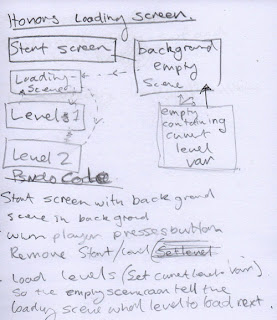 Honors Loading screen.
Start screen
background
empty
scene
Loading
scene
Levels 1
empty
containing
curent
level
var
Level 2
Psudo Code
Start screen with backgrond
scene in backgrond
when player presses button
Remove Start/Level Set level
Load Levels (Set curent Level Var)
So the empty scene can tell the
loading scene what level to load next.